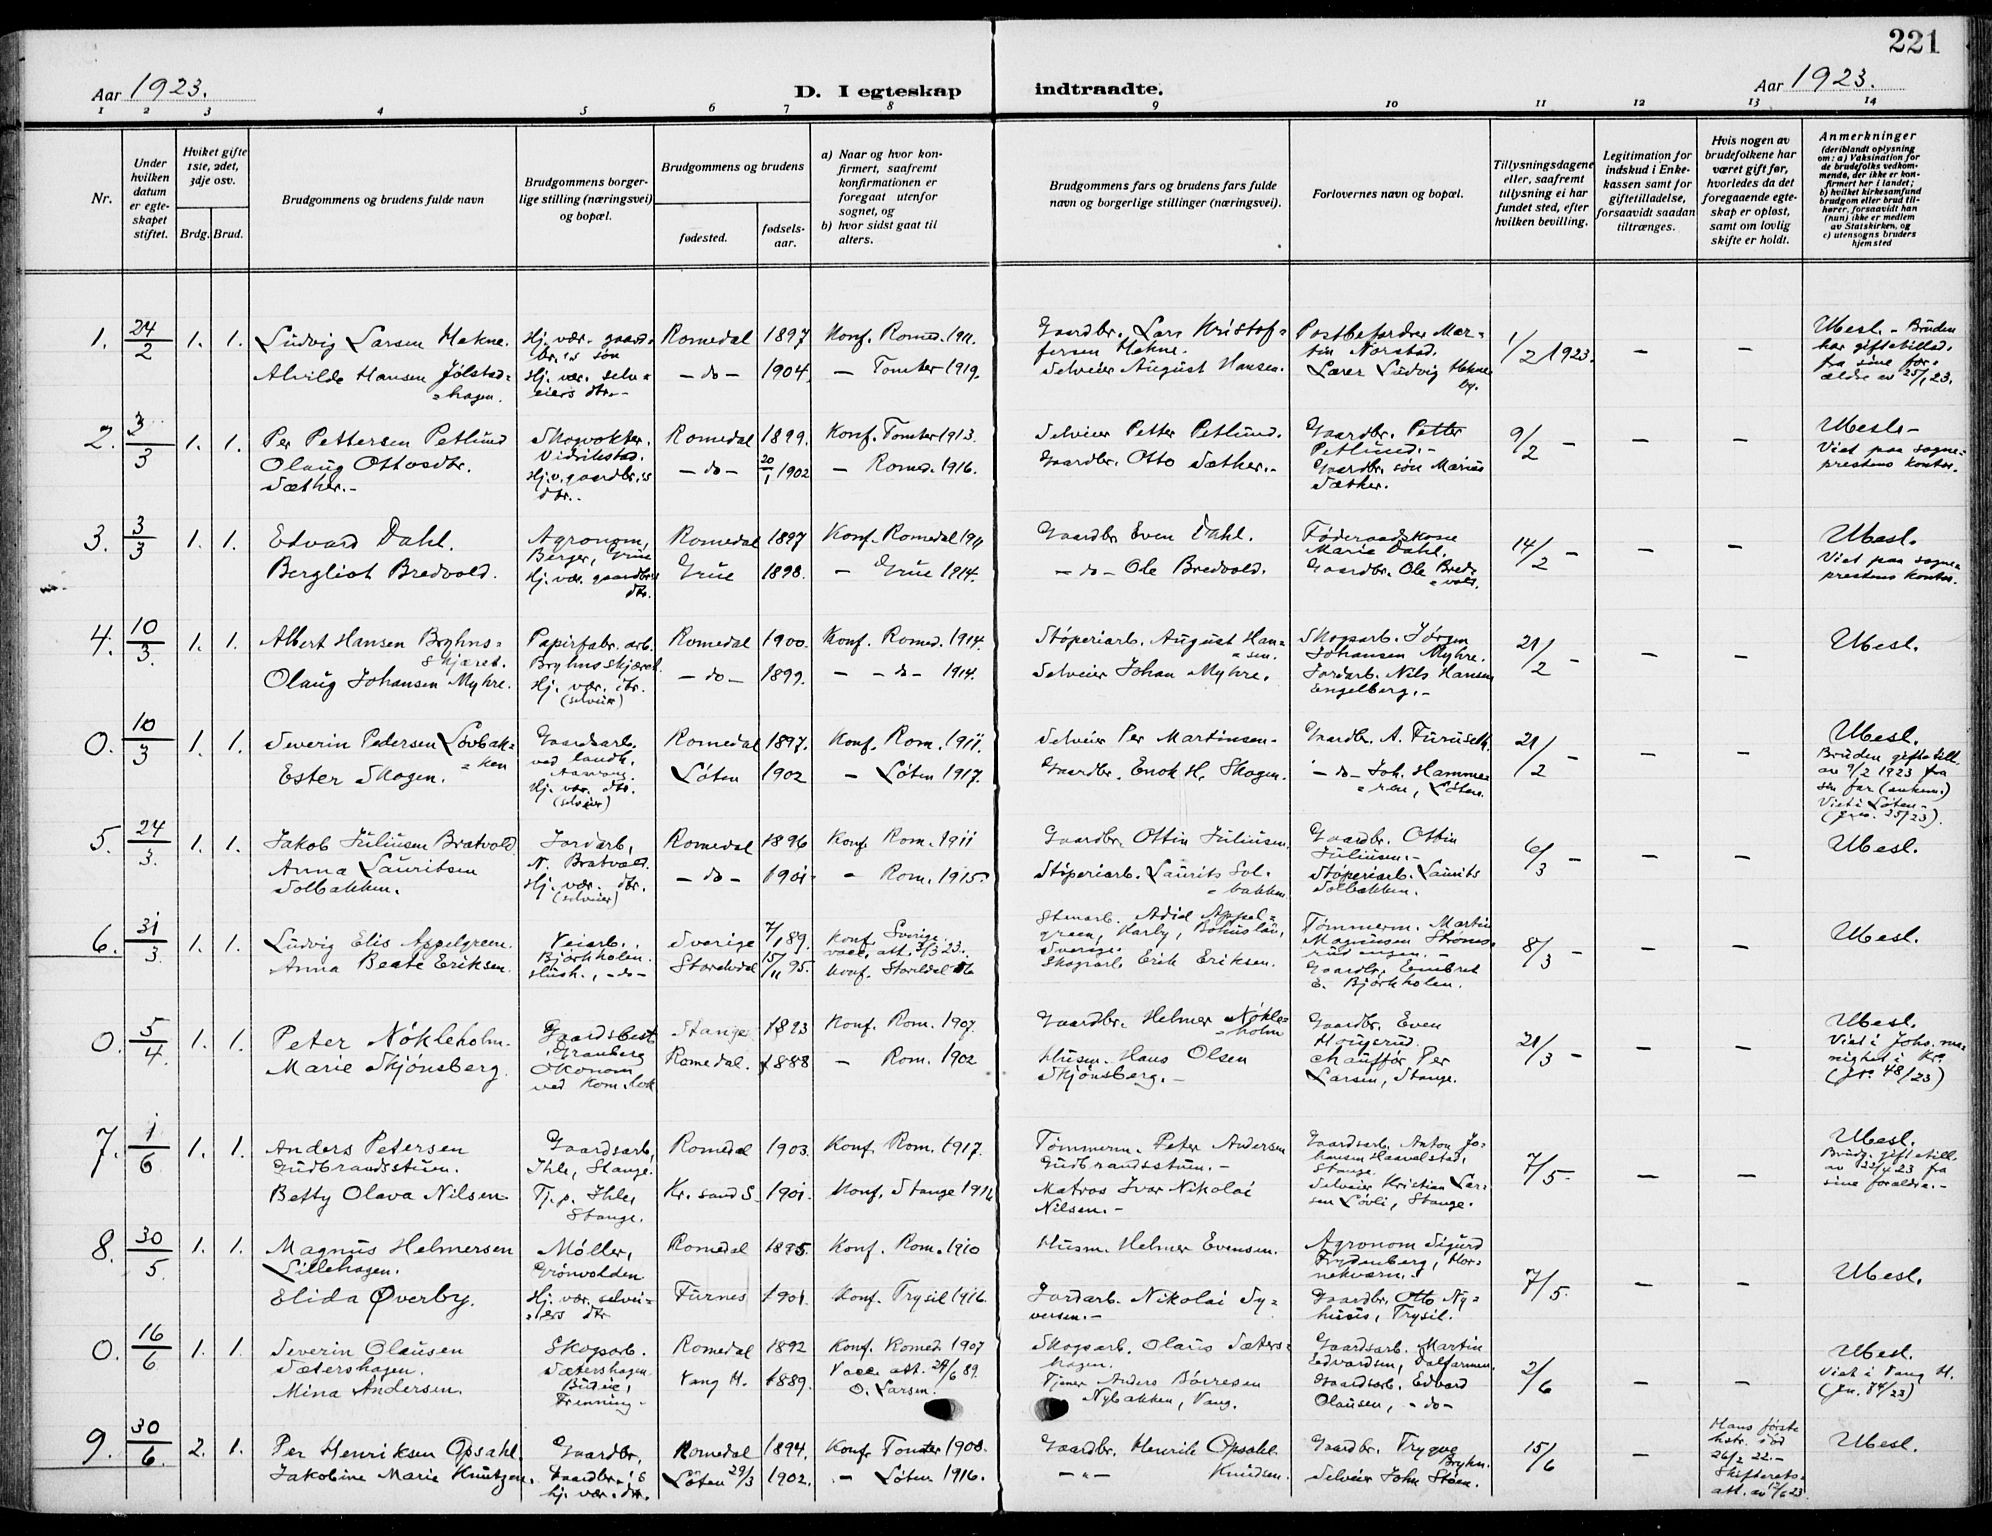 221
Aar 1923.
D. I egteskap indtraadte.
Aar 1923.
1 2 3 4 5 6 7 8 9 10 11 12 13 14
Nr.
Under hvilken datum er egteskapet stiftet.
Hvilket gifte 1ste, 2det, 3dje osv.
Brdg. Brud.
Brudgommens og brudens fulde navn
Brudgommens borgerlige stilling (næringsvei) og bopæl.
Brudgommens og brudens
fødested.
fødselsaar.
a) Naar og hvor konfirmert, saafremt konfirmationen er foregaat utenfor sognet, og
b) hvor sidst gaat til alters.
Brudgommens fars og brudens fars fulde navn og borgerlige stilling (næringsvei).
Forlovernes navn og bopæl.
Tillysningsdagene eller, saafremt tillysning ei har fundet sted, efter hvilken bevilling.
Legitimation for indskud i Enkekassen samt for giftetilladelse, forsaavidt saadan tiltrænges.
Hvis nogen av brudefolkene har været gift før, hvorledes da det foregaaende egteskap er opløst, samt om lovlig skifte er holdt.
Anmerkninger
(deriblandt oplysning om: a) Vaksination for de brudefolks vedkommende, der ikke er konfirmert her i landet; b) hvilket kirkesamfund brudgom eller brud tilhører, forsaavidt han (hun) ikke er medlem av Statskirken, og c) utensogns bruders hjemsted
1. 24/2 1. 1. Ludvig Larsen Hekne. Hj. vær. gaardbr.s søn Romedal 1897 Konf. Romed. 1911. Gaardbr. Lars Kristoffersen Hekne. Postbefordrer Martin Norstad. 1/2 1923. — — Ubesl. - Bruden har giftetillad. fra sine forældre av 25/1 23.
Alvilde Hansen Jølstadhagen. Hj. vær. selveiers dtr.- —do— 1904. — Tomter 1919. Selveier August Hansen. Lærer Ludvig Hekneby.
2. 3/3 1. 1. Per Pettersen Petlund Skogvokter. Vidrikstad. Romedal 1899. Konf. Tomter 1913. Selveier Petter Petlund. Gaardbr. Petter Petlund.- 9/2 — — — Ubesl.- Viet paa sogneprestens kontor.
Olaug Ottosdtr. Sæther.- Hj.v. gaardbr.s dtr.- —do— 20/1 1902 — Romed. 1916. Gaardbr. Otto Sæther.- Gaardbr. søn Marius Sæther.
3. 3/3 1. 1. Edvard Dahl. Agronom, Berger, Grue Romedal 1897 Konf. Romedal 1911 Gaardbr Even Dahl. Føderaadskone Marie Dahl. 14/2 — — — Ubesl. Viet paa sogneprestens kontor.
Bergliot Bredvold. Hj. vær. gaardbr.s dtr. Grue 1898. — Grue 1914. —do— Ole Bredvold. Gaardbr. Ole Bredvold.
4. 10/3. 1. 1. Albert Hansen Bryhnsskjæret. Papirfabr. arb. Bryhnsskjæret Romedal 1900. Konf. Romed. 1914. Støperiarb. August Hansen. Skogsarb. Jørgen Johansen Myhre. 21/2 — — — Ubesl.
Olaug Johansen Myhre. Hj. vær. dtr. (selveier) —do— 1899. — —do— 1914. Selveier Johan Myhre. Jordarb. Nils Hansen Engelberg.-
0. 10/3 1. 1. Severin Pedersen Løvbakken Gaardsarb. ved landh. Romedal 1897. Konf. Rom. 1911. Selveier Per Martinsen- Gaardbr. A. Furuseth. 21/2 — — — Ubesl. Bruden giftetill. av 9/2 1923 fra sin far Viet i Løten-
Ester Skogen. Hj. vær. dtr. (selveier) Løten 1902 — Løten 1917. Gaardbr. Enok H. Skogen. —do— Joh. Hammeren, Løten.
5. 24/3. 1. 1. Jakob Juliusen Bratvold Jordarb, N. Bratvold. Romedal 1896 Konf. Rom. 1911 Gaardbr. Ottin Juliusen. Gaardbr. Ottin Juliusen.- 6/3 — — — Ubesl.
Anna Lauritsen Solbakken. Hj. vær. dtr. (selveier) —do— 1901. — Rom. 1915. Støperiarb. Laurits Solbakken. Støperiarb. Laurits Solbakken.
6. 31/3. 1. 1. Ludvig Elis Appelgreen. Veiarb. Bjørkholen. Sverige 7/1 89. Konf. Sverige. vacc. att. 3/3 23. Stenarb. Adiel Appelgreen, Harby, Bohuslän, Sverige. Tømmerm. Martin Magnusen 8/3 — — — Ubesl.
Anna Beate Eriksen. Hush., —do— Storelvdal 15/11 95. Konf. Skogsarb. Erik Eriksen. Gaardbr. Embret E. Bjørkholen.
0. 5/4. 1. 1. Peter Nøkleholm. Gaardsbest. Granberg Stange 1893 Konf. Rom. 1907. Gaardbr. Helmer Nøkleholm Gaardbr. Even 21/3 — — — Ubesl. Viet i Johs. menighet i Kr.a (J.nr. 48/23)
Marie Skjønsberg. Økonom ved Rom. Romedal. 1888 — Rom. 1902 Husm. Hans Olsen Skjønsberg.- Chauffør Per Larsen, Stange.
7. 1/6 1. 1. Anders Petersen Gudbrandsstuen. Gaardsarb, Ihle, Stange. Romedal 1903. Konf. Rom. 1917. Tømmerm. Peter Andersen Gudbrandsstuen.- Gaardsarb. Anton Johansen Haavelstad, Stange. 7/5- — — Ubesl. Brudg. giftetill. av 22/4 23 fra sine forældre.-
Betty Olava Nilsen Tj. p. Ihle, Stange. Kr. sand S. 1901. Konf. Stange 1916 Matros Ivar Nikolai Nilsen.- Selveier Kristian Larsen Løvli, Stange.
8. 30/5. 1. 1. Magnus Helmersen Lillehagen. Møller, Grønvolden Romedal 1895. Konf. Rom. 1910 Husm. Helmer Evensen. Agronom Sigurd Frydenberg, Hornekværn.- 7/5. — — Ubesl.
Elida Øverby. Hj. vær. selveiers dtr Furnes 1901. Konf. Trysil 1916. Jordarb. Nikolai Syversen.- Gaardbr. Otto Nyhuus, Trysil.
0. 16/6 1. 1. Severin Olausen Sætershagen. Skogsarb. Sætershagen. Romedal 1892 Konf. Romed. 1907 Skogsarb. Olaus Sætershagen. Gaardsarb. Martin Edvardsen, Dalfarmen. 2/6 — — Ubesl. Viet i Vang H. (J.nr. 74/23)
Mina Andersen. Budeie, Frenning- Vang H. 1889. Vacc. att. 29/6 89. O. Larsen. Tjener Anders Børresen Nybakken, Vang. Gaardsarb. Edvard Olausen, —do—
9. 30/6. 2. 1. Per Henriksen Opsahl. Gaardbr, Romedal 1894. Konf. Tomter 1908. Gaardbr. Henrik Opsahl. Gaardbr. Trygve Bryhn. 15/6 — Hans første hstr. død 26/2 22.- Skifteretsatt. av 12/6 23. Ubesl.
Jakobine Marie Knutzen. Gaardbr.s hj. vær. dtr. Løten 29/3 1902. — Løten 1916. —"— Knudsen. Selveier John Støen.